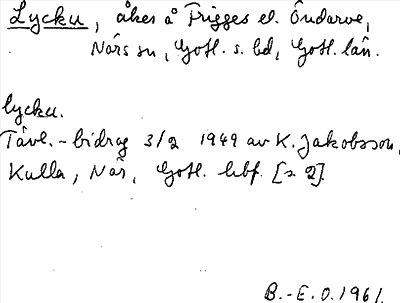 Lycku, åker å Frigges el. Öndarve,
När sn, Gotl. s. bd, Gotl. län.
lycku.
Tävl.-bidrag 3/2 1949 av K. Jakobsson,
Kulla, När, Gotl. hbf. [s. 2].
B.-E. O. 1961.